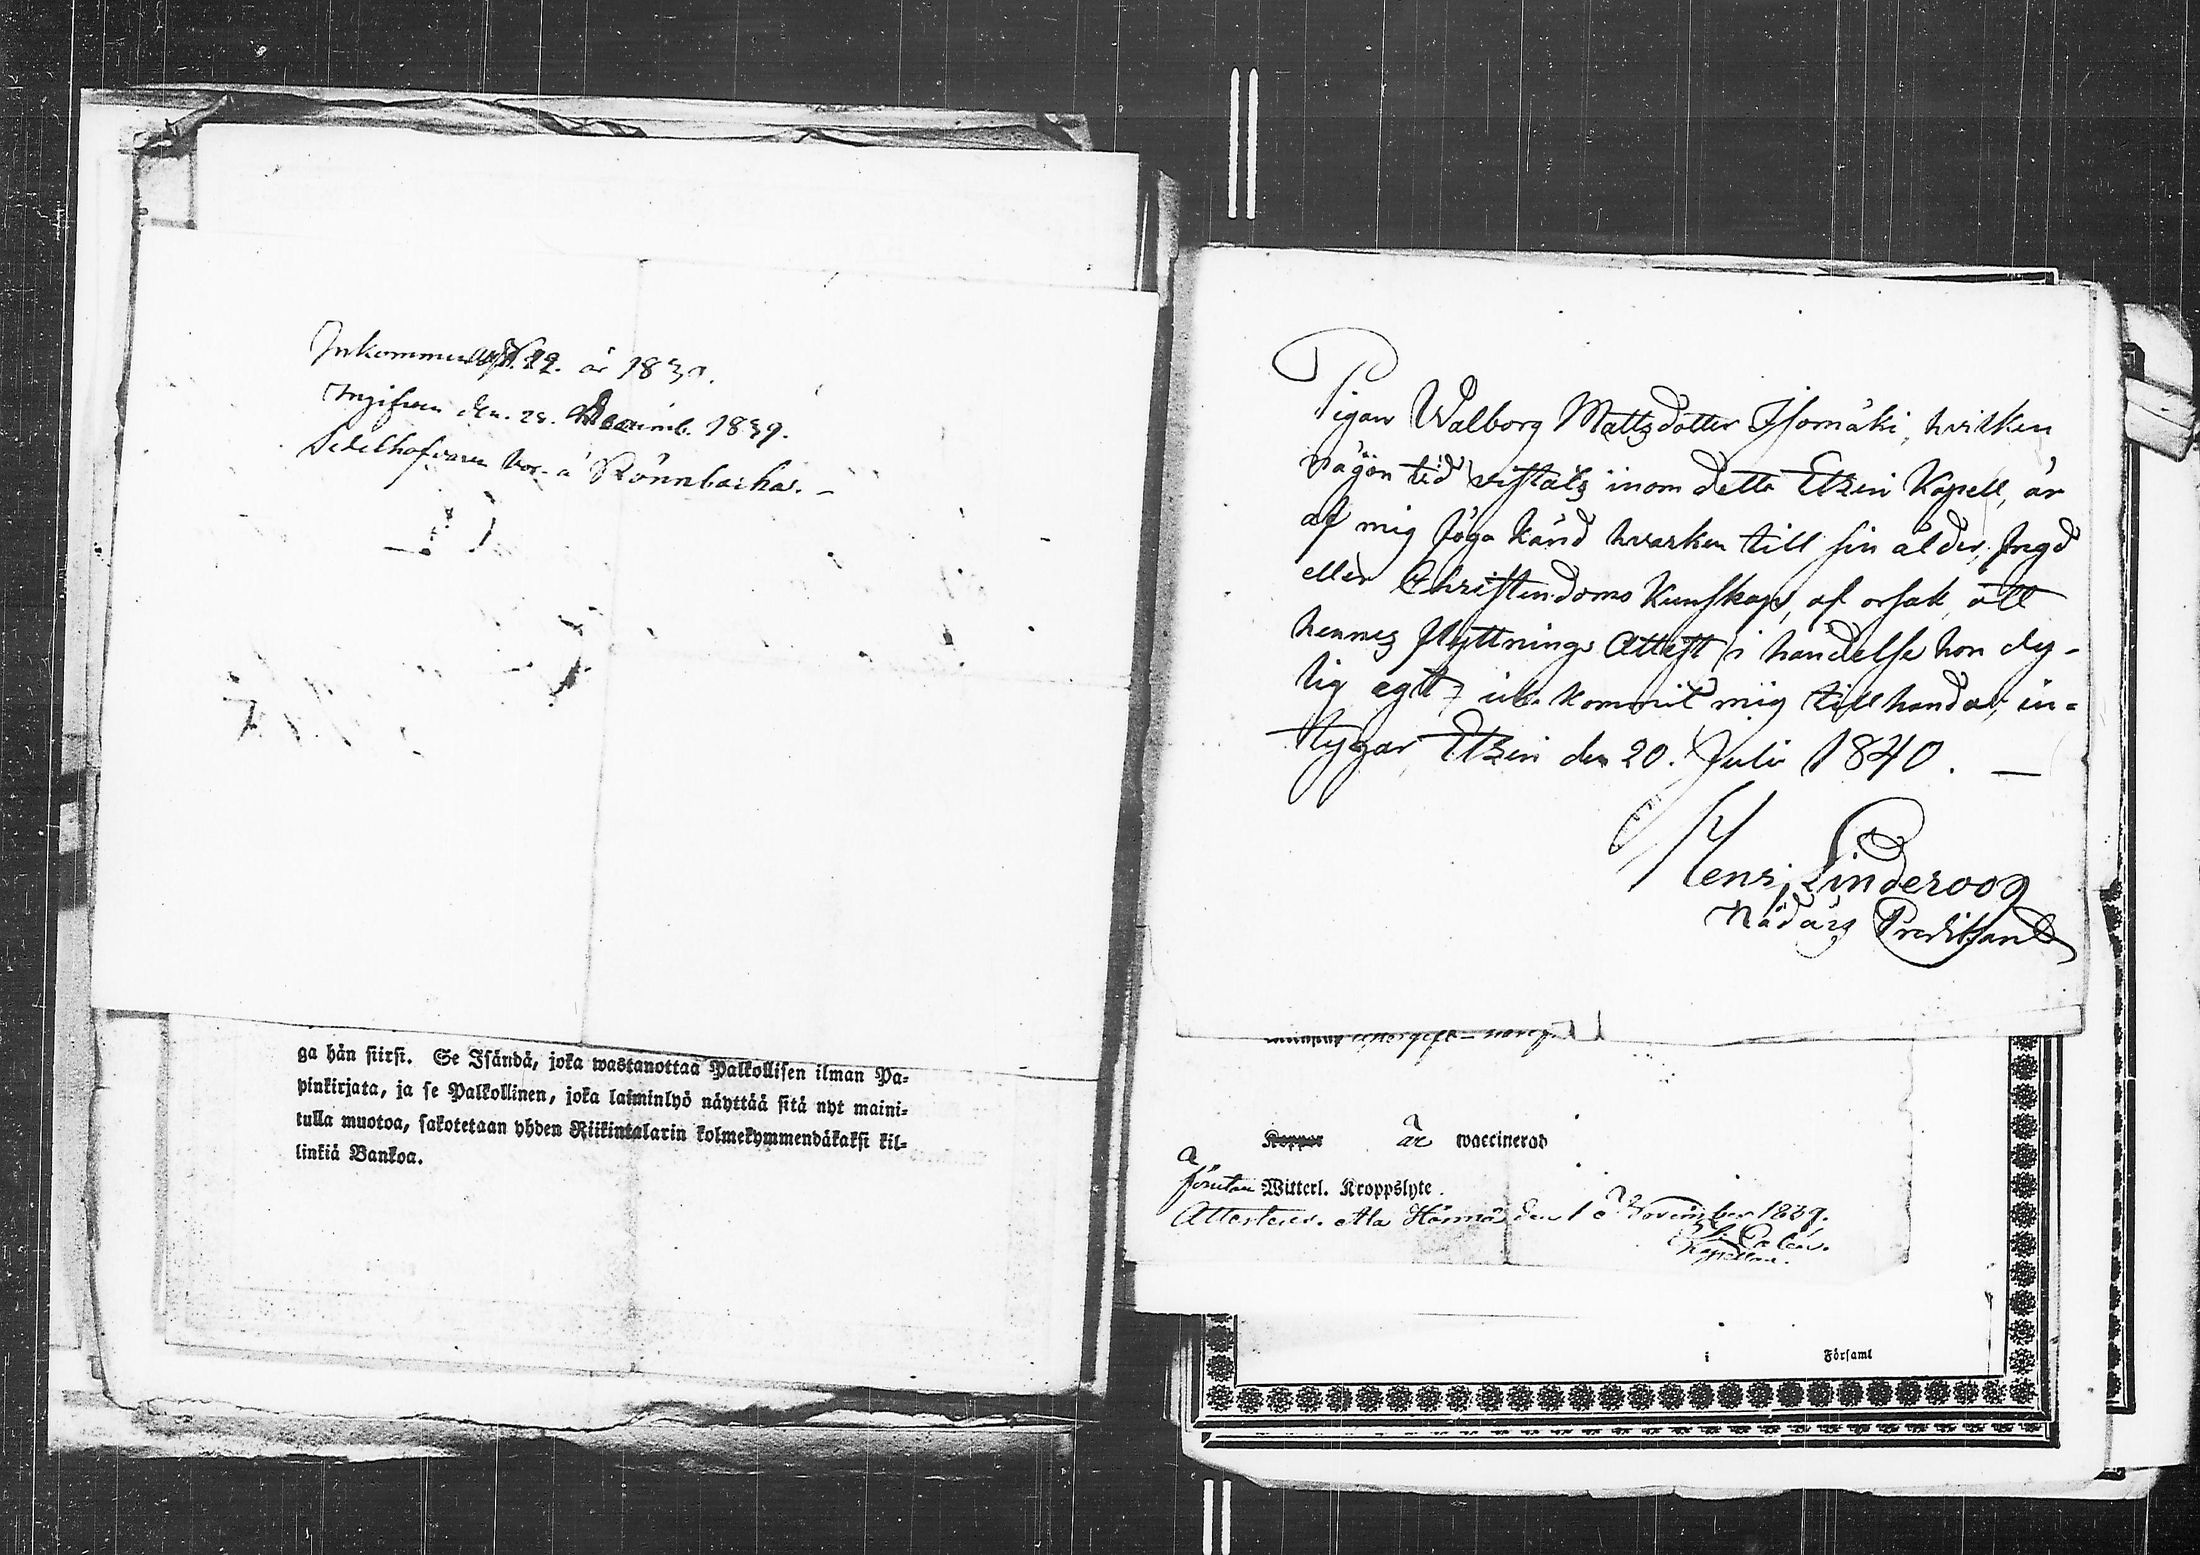 Inkommen år 1839.
Ingifven den. 28. Decemb. 1839.
Sedelhafvaren bor. á Rönnbacka. -
ga hän siirsi. Se Isändä, joka wastanottaa Palkollisen ilman Pa-
pinkirjata, ja se Palkollinen, joka laiminlyö näyttää sitä nyt maini-
tulla muotoa, sakotetaan yhden Riikintalarin kolmekymmendäkaksi kil-
linkiä Bankoa.
Pigan Walborg Mattsdotter Isomäki, hvilken
någon tid vistats inom detta Etseri Kapell, är
af mig föga känd hvarken till sin ålder, frejd
eller Christendoms Kunskap, af orsak, att
hennes flyttnings Attest, i händelse hon dy-
lig egt, icke kommit mig till handa, in-
tygar, Etseri den 20. Juli 1840. —
Henr. Linderoos
Nådårs Predikant
Koppor är waccinerad
förutan Witterl. Kroppslyte.
Attesterer. Ala Härmä den 1 November 1839.
Kapellan.
i Församl